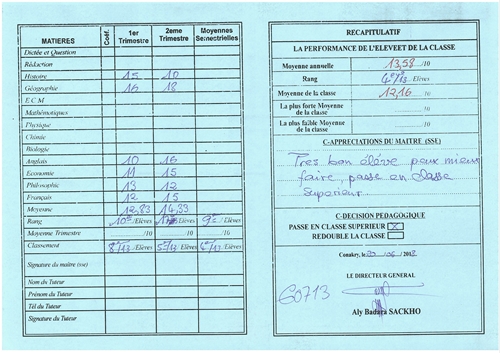 MATIERES Coéf. 1er Trimestre 2eme Trimestre Moyennes Semestrielles
Dictée et Question
Rédaction
Histoire 15 10
Géographie 16 18
E C M
Mathématiques
Physique
Chimie
Biologie
Anglais 10 16
Economie 11 15
Philosophie 13 12
Français 12 15
Moyenne 12,83 14,33
Rang /Elèves /Elèves /Elèves
Moyenne Trimestre /10 /10 /10
Classement /13 /Elèves /13 /Elèves /13 /Elèves
Signature du maître (sse)
Nom du Tuteur
Prénom du Tuteur
Tél du Tuteur
Signature du Tuteur
RECAPITULATIF
LA PERFORMANCE DE L'ELEVEET DE LA CLASSE
Moyenne annuelle 13,58 /10
Rang 4e/13 Elèves
Moyenne de la classe 12,16 /10
La plus forte Moyenne de la classe /10
La plus faible Moyenne de la classe /10
C-APPRECIATIONS DU MAITRE (SSE)
Tres bon élève peux mieux
faire, passe en classe
Superieur
C-DECISION PEDAGOGIQUE
PASSE EN CLASSE SUPERIEUR X
REDOUBLE LA CLASSE
Conakry, le
LE DIRECTEUR GENERAL
60713
Aly Badara SACKHO